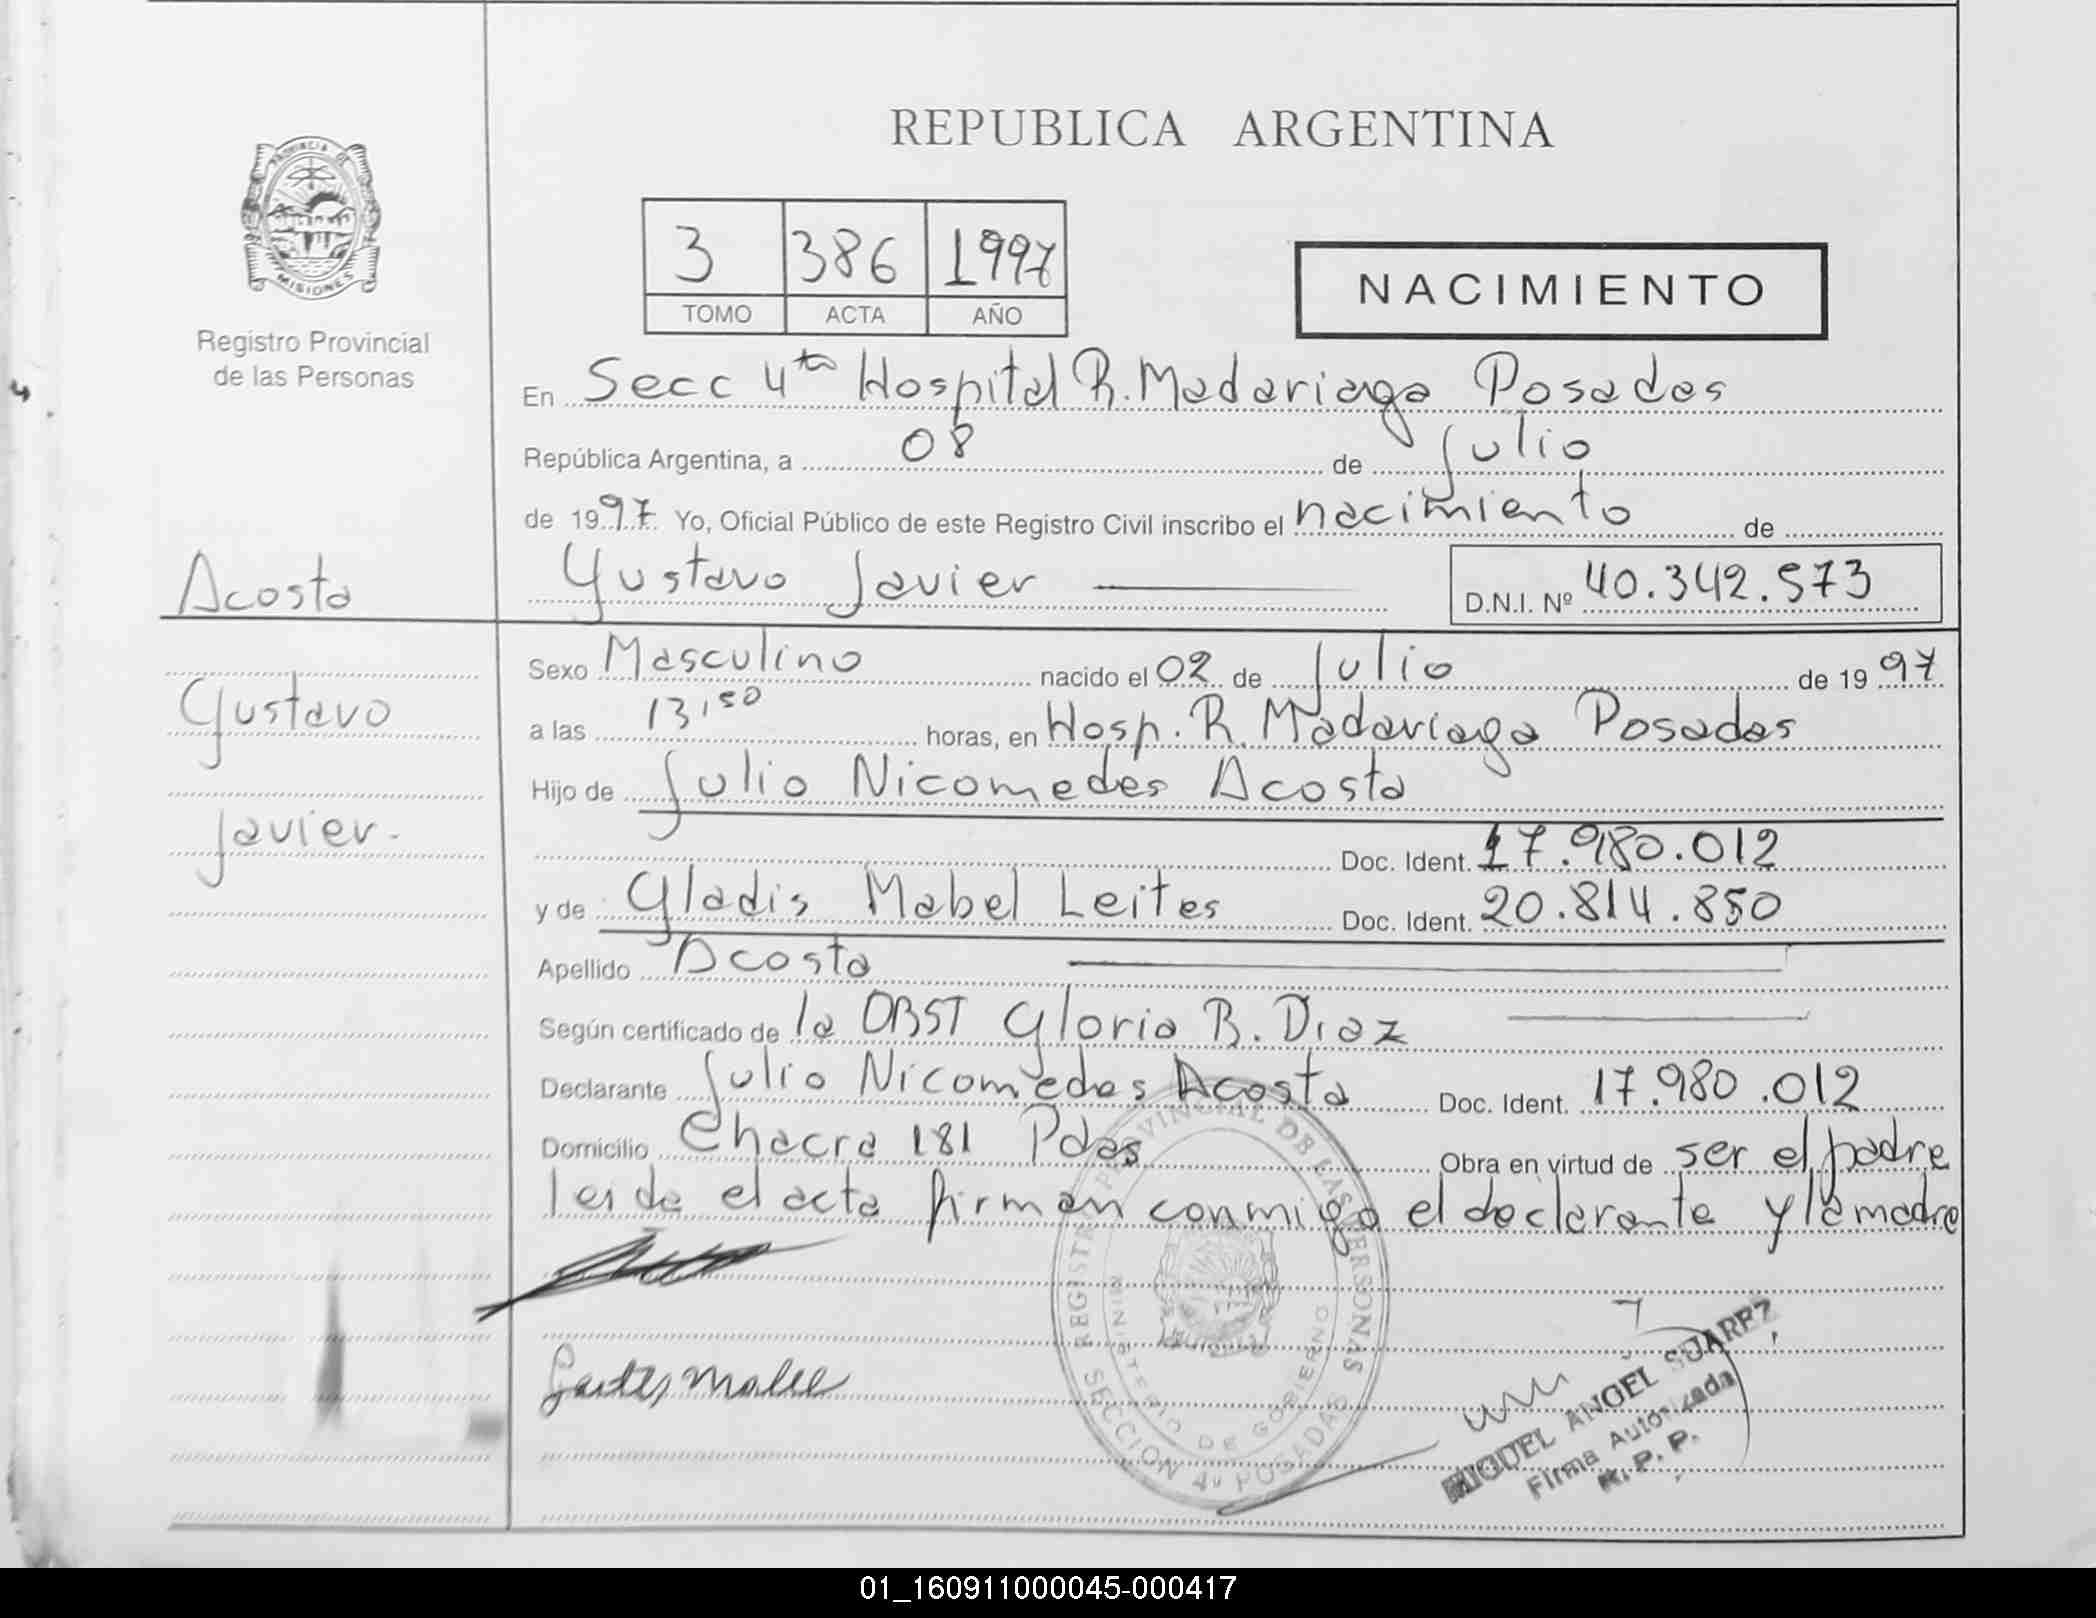 REPUBLICA ARGENTINA
PROVINCIA DE
MISIONES
Registro Provincial
de las Personas
3 386 1997
TOMO ACTA AÑO
NACIMIENTO
En Secc 4ta Hospital R. Madariaga Posadas
República Argentina, a 08 de Julio
de 1997 Yo, Oficial Público de este Registro Civil inscribo el nacimiento de
Acosta
Gustavo Javier
D.N.I. Nº 40.342.573
Sexo Masculino nacido el 02 de Julio de 1997
Gustavo
a las 13,50 horas, en Hosp. R. Madariaga Posadas
Hijo de Julio Nicomedes Acosta
Javier.-
Doc. Ident. 17.980.012
y de Gladis Mabel Leites Doc. Ident. 20.814.850
Apellido Acosta
Según certificado de la OBST Gloria B. Diaz
Declarante Julio Nicomedes Acosta Doc. Ident. 17.980.012
Domicilio Chacra 181 Pdas Obra en virtud de ser el padre
leida el acta firman conmigo el declarante y la madre
REGISTRO PROVINCIAL DE LAS PERSONAS
MINISTERIO DE GOBIERNO
SECCION 4ª POSADAS
MIGUEL ANGEL SUAREZ
Firma Autorizada
R. P. P.
01_160911000045-000417